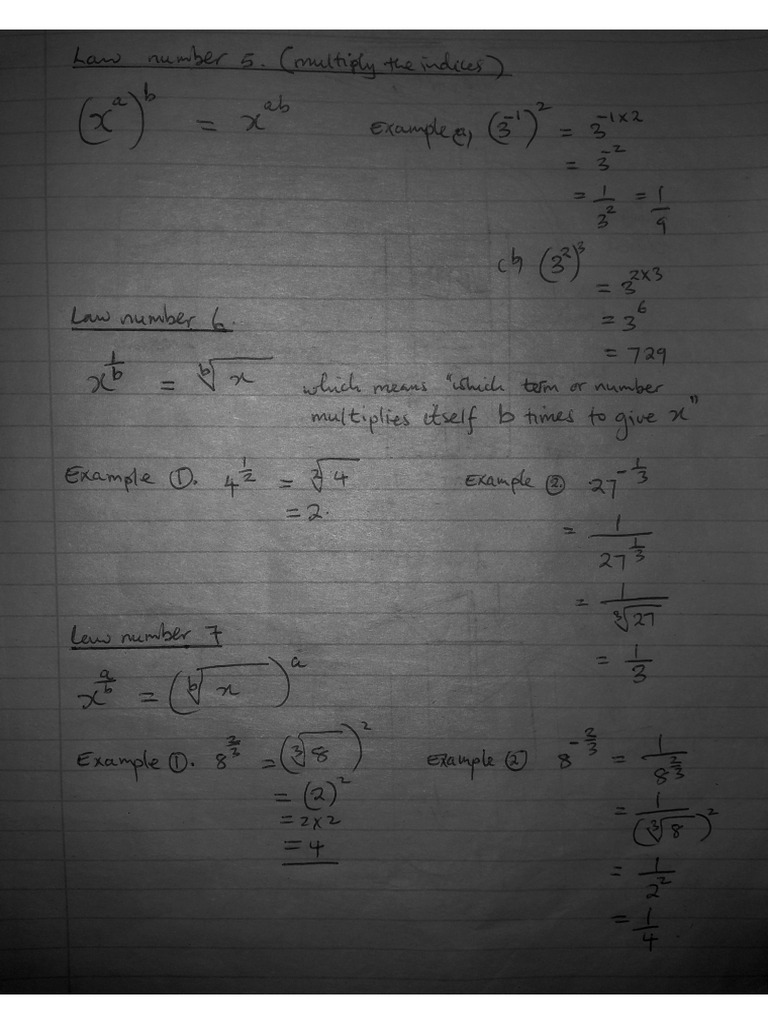 Law number 5. (multiply the indices)
(x^a)^b = x^ab
Example (a) (3^-1)^2 = 3^-1×2
= 3^-2
= 1/3^2 = 1/9
(b) (3^2)^3
= 3^2×3
= 3^6
= 729
Law number 6.
x^1/b = ᵇ√x which means "which term or number
multiplies itself b times to give x"
Example ①. 4^1/2 = ²√4
= 2.
Example ②. 27^-1/3
= 1/27^1/3
= 1/³√27
= 1/3
Law number 7
x^a/b = (ᵇ√x)^a
Example ①. 8^2/3 = (³√8)^2
= (2)^2
= 2×2
= 4
Example ② 8^-2/3 = 1/8^2/3
= 1/(³√8)^2
= 1/2^2
= 1/4